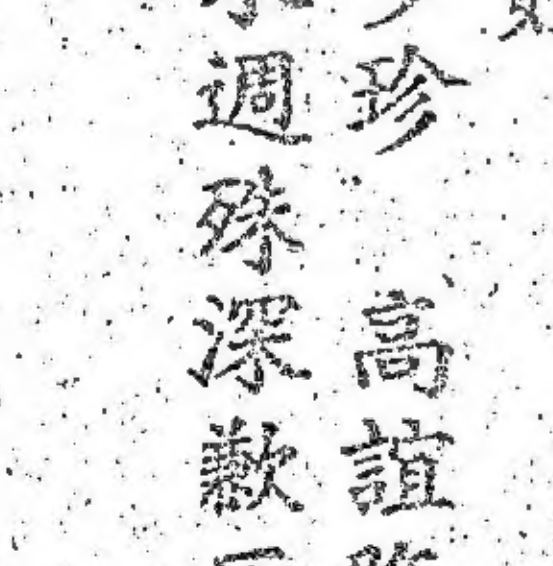 珍　高誼
週殊深歉